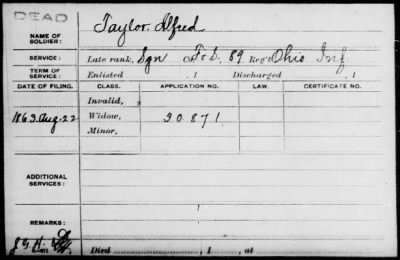 DEAD
NAME OF SOLDIER: Taylor, Alfred
SERVICE: Late rank, Sgn Co. F&S, 89 Reg't Ohio Inf
TERM OF SERVICE: Enlisted , 1 Discharged , 1
DATE OF FILING. CLASS. APPLICATION NO. LAW. CERTIFICATE NO.
Invalid,
1863. Aug. 22 Widow, 30.871
Minor,
ADDITIONAL SERVICES:
REMARKS:
Died , 1 , at